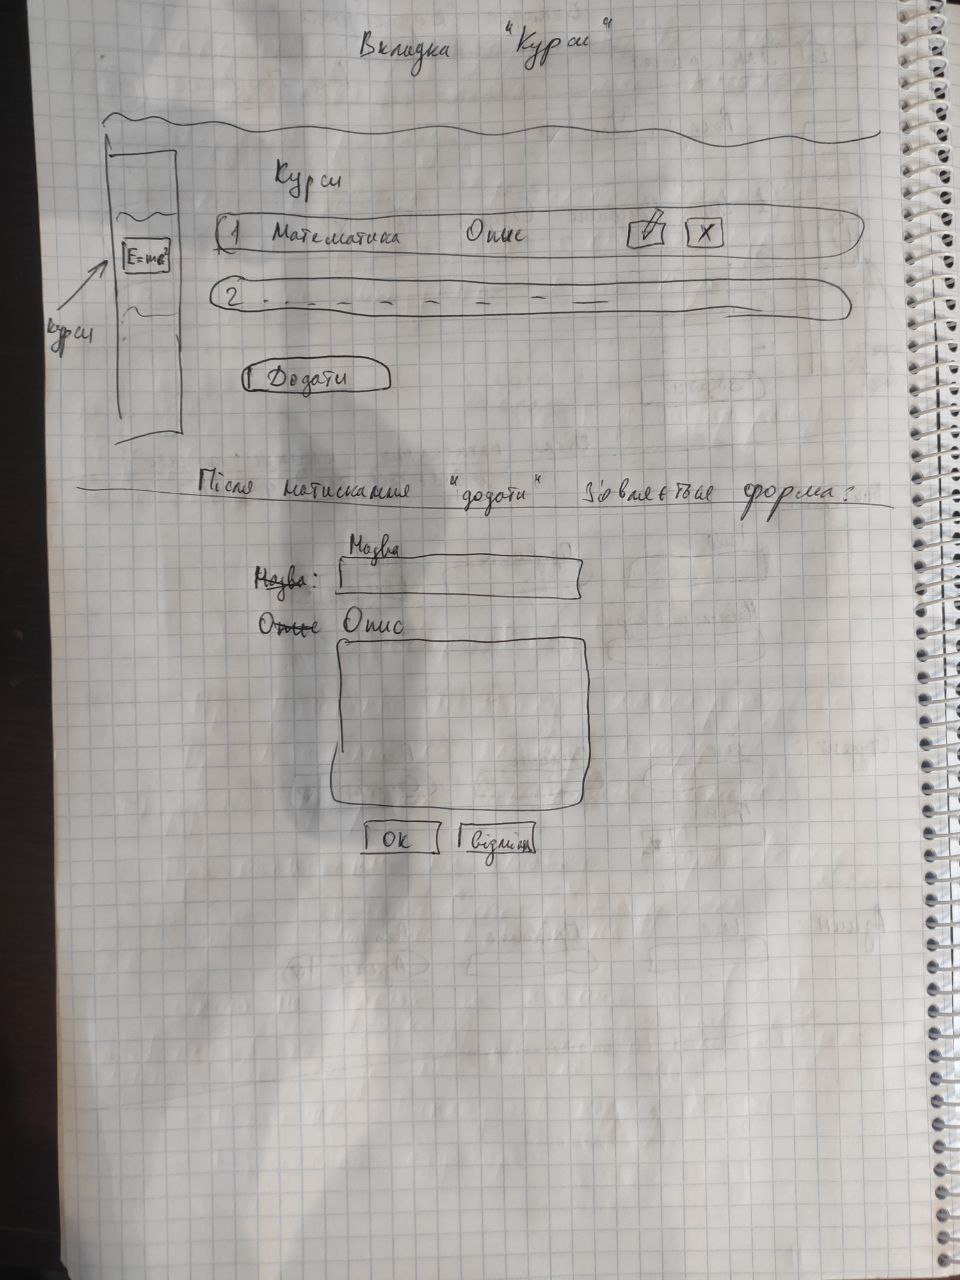 Вкладка "Курси"
Курси
1 Математика Опис X
E=mc²
2
Курси
Додати
Після натискання "додати" з'являється форма:
Назва
Назва:
Опис Опис
ОК Відміна